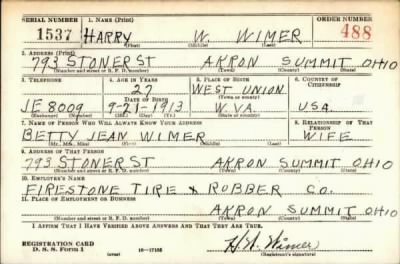 SERIAL NUMBER 1. NAME (Print) ORDER NUMBER
1537 HARRY W. WIMER 488
(First) (Middle) (Last)
2. ADDRESS (Print)
793 STONER ST AKRON SUMMIT OHIO
(Number and street or R. F. D. number) (Town) (County) (State)
3. TELEPHONE 4. AGE IN YEARS 5. PLACE OF BIRTH 6. COUNTRY OF CITIZENSHIP
27 WEST UNION
DATE OF BIRTH (Town or county)
JE 8009 9-21-1913 W.VA. USA
(Exchange) (Number) (Mo.) (Day) (Yr.) (State or country)
7. NAME OF PERSON WHO WILL ALWAYS KNOW YOUR ADDRESS 8. RELATIONSHIP OF THAT PERSON
BETTY JEAN WIMER WIFE
(Mr., Mrs., Miss) (First) (Middle) (Last)
9. ADDRESS OF THAT PERSON
793 STONER ST AKRON SUMMIT OHIO
(Number and street or R. F. D. number) (Town) (County) (State)
10. EMPLOYER'S NAME
FIRESTONE TIRE & RUBBER CO.
11. PLACE OF EMPLOYMENT OR BUSINESS
AKRON SUMMIT OHIO
(Number and street or R. F. D. number) (Town) (County) (State)
I AFFIRM THAT I HAVE VERIFIED ABOVE ANSWERS AND THAT THEY ARE TRUE.
REGISTRATION CARD
D. S. S. Form 1 (over) 16—17105 H. W. Wimer
(Registrant's signature)